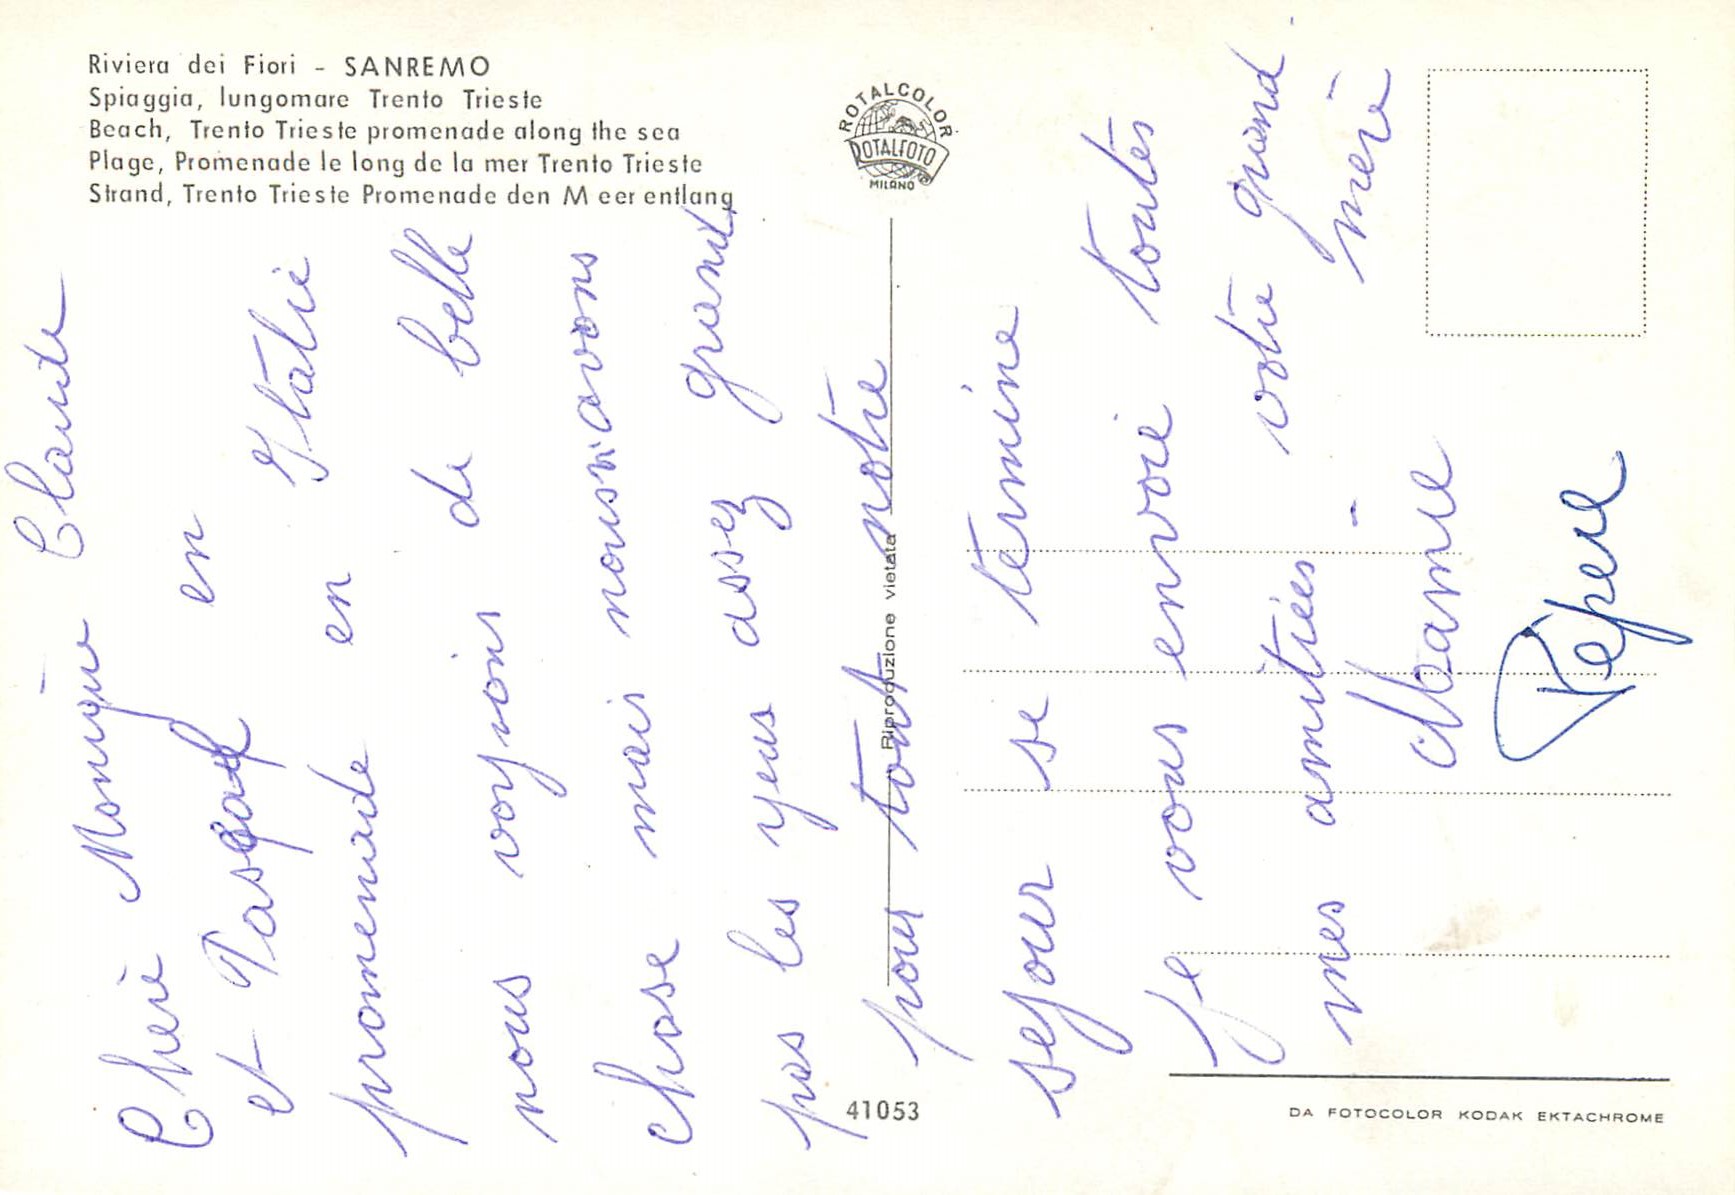 Riviera dei Fiori - SANREMO
Spiaggia, lungomare Trento Trieste
Beach, Trento Trieste promenade along the sea
Plage, Promenade le long de la mer Trento Trieste
Strand, Trento Trieste Promenade den Meer entlang
ROTALCOLOR
ROTALFOTO
MILANO
Chère Monique Claude
et Pascale en
promenade en Italie
nous voyons de belle
chose mais nous n'avons
pas les yeus assez grand
pour tout notre
sejour se termine
Je vous envoie toutes
mes amitiées votre grand
mère
Mamie
Pépère
Riproduzione vietata
41053
DA FOTOCOLOR KODAK EKTACHROME